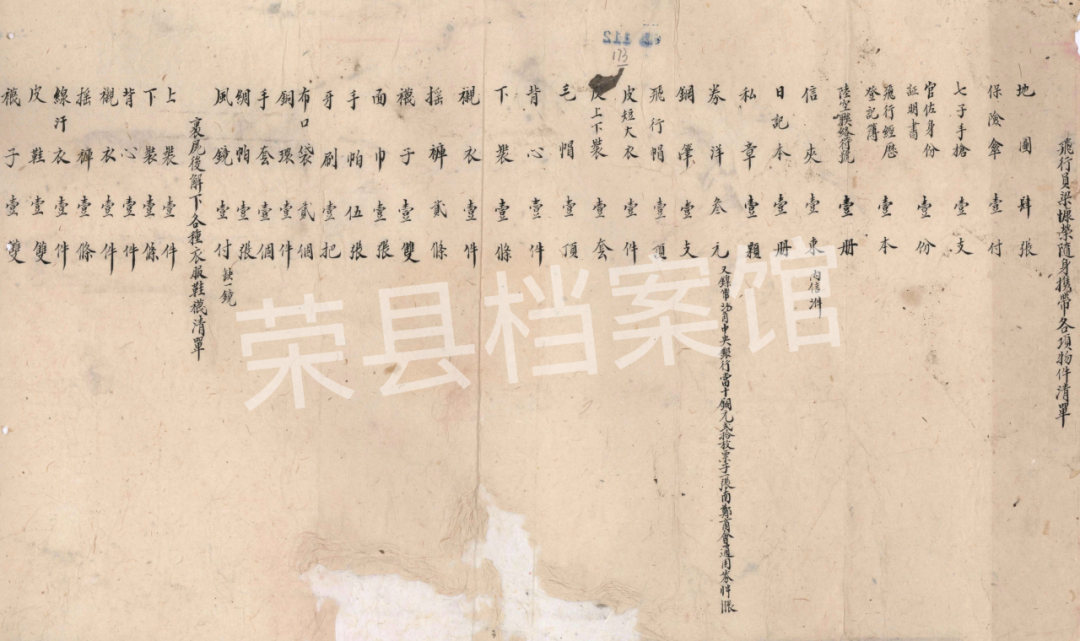 飛行員梁 隨身携帶各項物件清單
地圖肆張
保險傘壹付
七子手搶壹支
官佐身份証明書壹份
飛行經歷登記薄壹本
陸空聯絡符號壹册
信夾壹束 內信
日記本壹册
私章壹顆
券洋叁元 又 中央銀行當十銅元 票子一張南鄭商會通用券
鋼筆壹支
飛行帽壹頂
皮短大衣壹件
皮上下裝壹套
毛帽壹頂
背心壹件
下裝壹條
襯衣壹件
摇褲貳條
襪子壹雙
面巾壹張
手帕伍張
牙刷壹把
布口袋貳個
銅環壹件
手套壹個
綢帕壹張
風鏡壹付 缺一鏡
裹屍後解下各種衣服鞋襪清單
上裝壹件
下裝壹條
背心壹件
襯衣壹件
摇褲壹條
線汗衣壹件
皮鞋壹雙
襪子壹雙
112
173
荣县档案馆